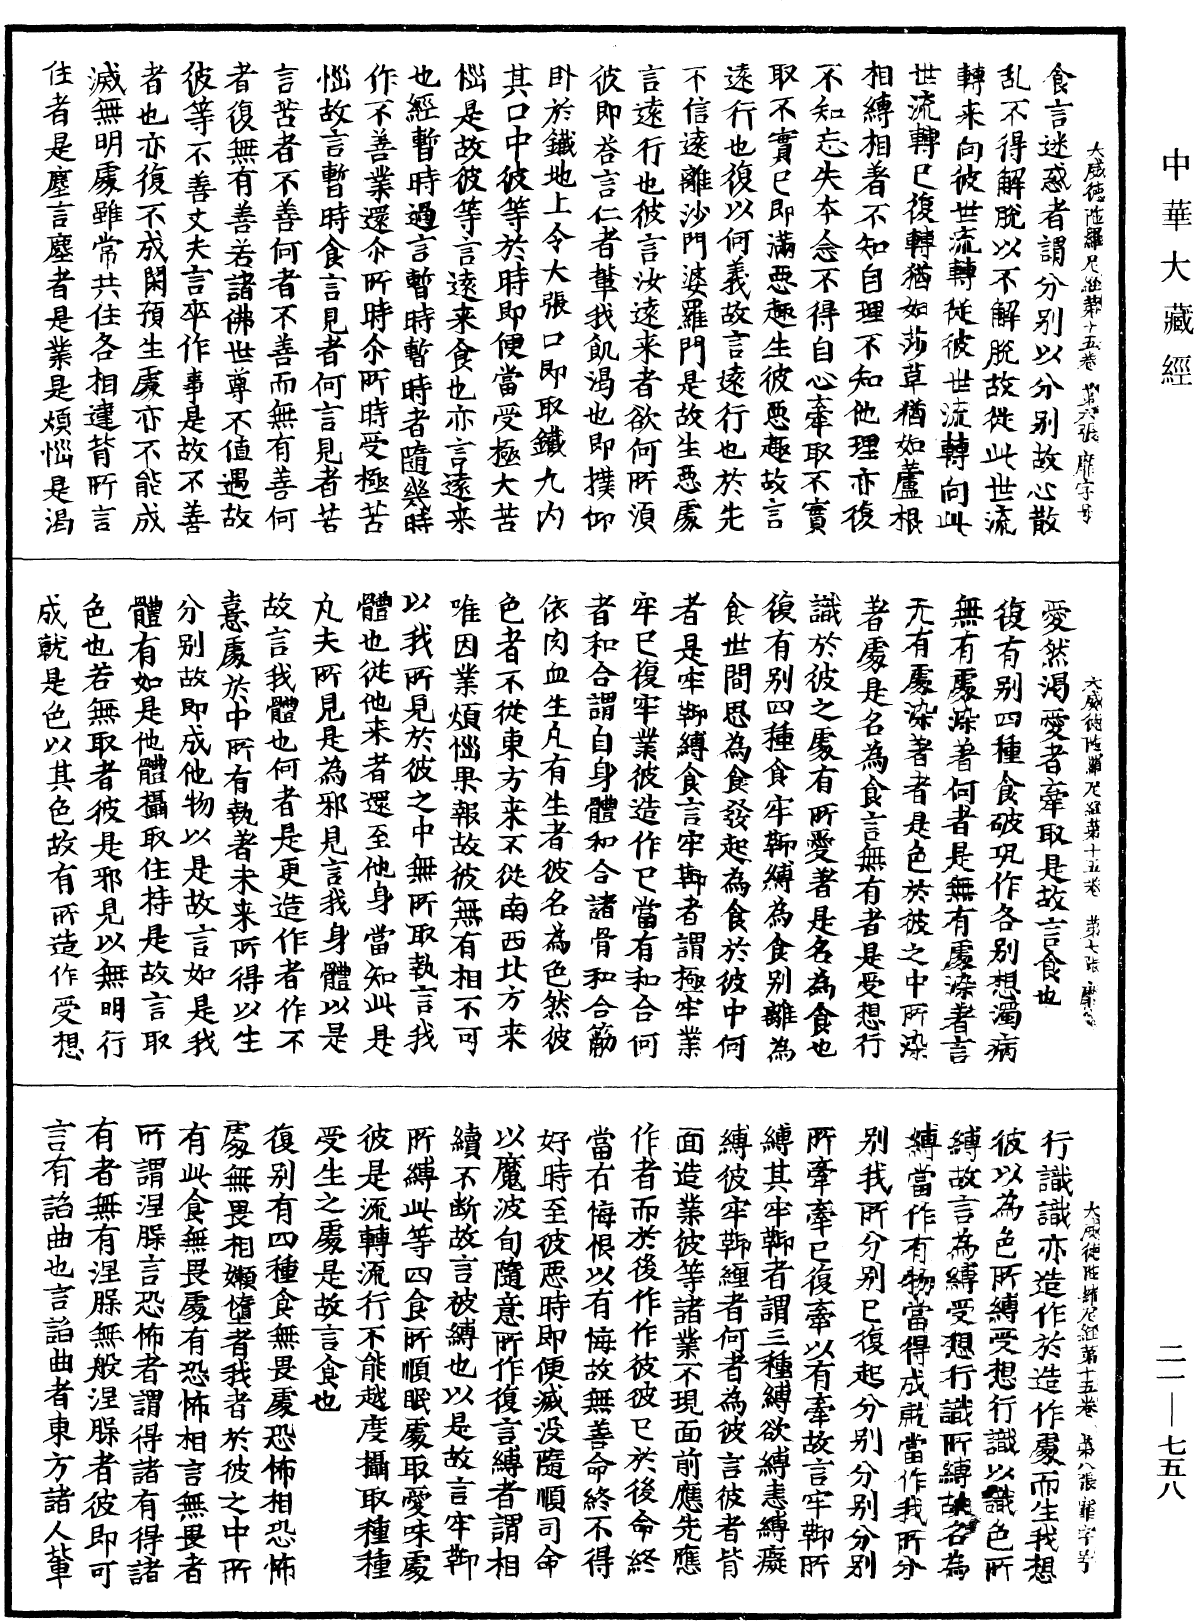 中華大藏經
二一—七五八
大威德陁羅尼經第十五卷 第六張 靡字号
食言迷惑者謂分别以分别故心散
乱不得解脱以不解脱故從此世流
轉来向彼世流轉從彼世流轉向此
世流轉已復轉猶如莎草猶如蘆根
相縛相著不知自理不知他理亦復
不知忘失本念不得自心牽取不實
取不實已即滿惡趣生彼惡趣故言
遠行也復以何義故言遠行也於先
不信遠離沙門婆羅門是故生惡處
言遠行也彼言汝遠来者欲何所湏
彼即荅言仁者輩我飢渴也即撲仰
卧於鐵地上令大張口即取鐵九内
其口中彼等於時即便當受極大苦
惱是故彼等言遠来食也亦言遠来
也經暫時過言暫時暫時者隨幾時
作不善業還尒所時尒所時受極苦
惱故言暫時食言見者何言見者苦
言苦者不善何者不善而無有善何
者復無有善若諸佛世尊不值遇故
彼等不善丈夫言卒作事是故不善
者也亦復不成閑預生處亦不能成
滅無明處雖常共住各相違背所言
住者是塵言塵者是業是煩惱是渴
大威德陁羅尼經第十五卷 第七張 靡
愛然渴愛者牽取是故言食也
復有别四種食破㲉作各别想濁病
無有處染著何者是無有處染著言
无有處染著者是色於彼之中所染
著處是名為食言無有者是受想行
識於彼之處有所愛著是名為食也
復有别四種食牢䩕縛為食别離為
食世間思為食發起為食於彼中何
者是牢䩕縛食言牢䩕者謂極牢業
牢已復牢業彼造作已當有和合何
者和合謂自身體和合諸骨和合筋
依肉血生凡有生者彼名為色然彼
色者不從東方来不從南西北方来
唯因業煩惱果報故彼無有相不可
以我所見於彼之中無所取執言我
體也從他来者還至他身當知此是
凡夫所見是為邪見言我身體以是
故言我體也何者是更造作者作不
憙處於中所有執著未来所得以生
分别故即成他物以是故言如是我
體有如是他體攝取住持是故言取
色也若無取者彼是邪見以無明行
成就是色以其色故有所造作受想
大威德陁羅尼經第十五卷 第八張 靡字号
行識識亦造作於造作處而生我想
彼以為色所縛受想行識以識色所
縛故言為縛受想行識所縛故名為
縛當作有物當得成就當作我所分
别我所分别已復起分别分别分别
所牽牽已復牽以有牽故言牢䩕所
縛其牢䩕者謂三種縛欲縛恚縛癡
縛彼牢䩕纏者何者為彼言彼者皆
面造業彼等諸業不現面前應先應
作者而於後作作彼彼已於後命終
當右悔恨以有悔故無善命終不得
好時至彼惡時即便滅没隨順司命
以魔波旬隨意所作復言縛者謂相
續不断故言被縛也以是故言牢䩕
所縛此等四食所順眠處取愛味處
彼是流轉流行不能越度攝取種種
受生之處是故言食也
復别有四種食無畏處恐怖相恐怖
處無畏相嬾墯者我者於彼之中所
有此食無畏處有恐怖相言無畏者
所謂涅槃言恐怖者謂得諸有得諸
有者無有涅槃無般涅槃者彼即可
言有諂曲也言諂曲者東方諸人軰